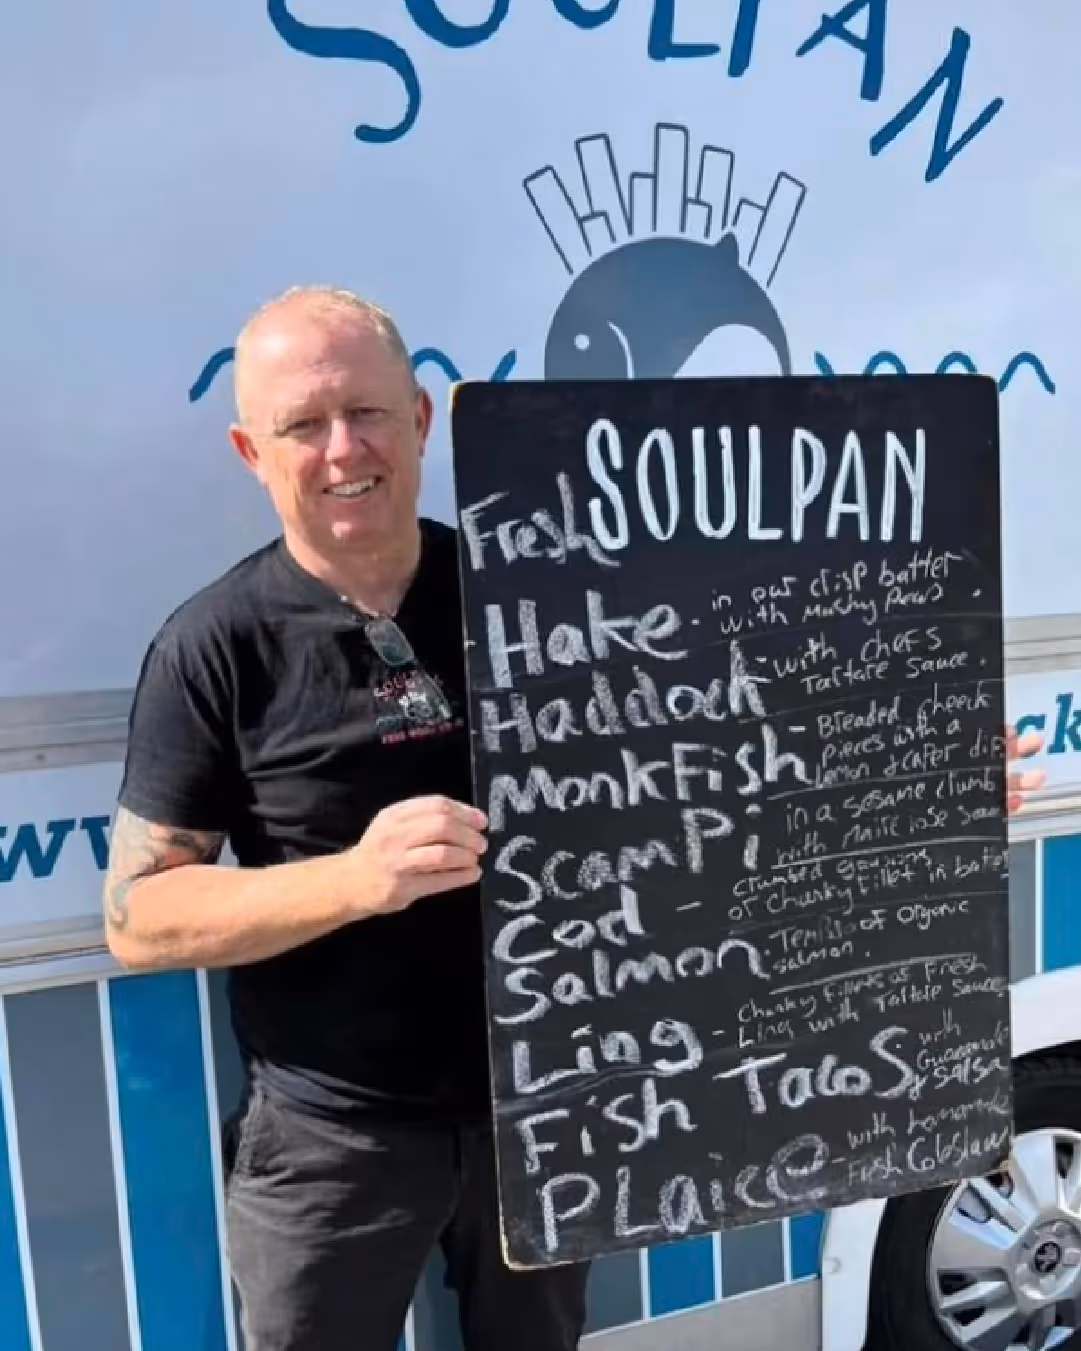 SOULPAN
SOULPAN
Fresh
Hake. in our crisp batter
with Mushy Peas.
Haddock - with chefs
Tartare Sauce.
MonkFish - Breaded cheek
Pieces with a
Lemon & caper dip
ScamPi in a sesame crumb
with Marie rose Sauc
Cod - crumbed goujons
or chunky fillet in batter
Salmon. of organic
salmon.
Ling - Chunky fillets of Fresh
Ling with Tartare Sauce
Fish Tacos with
Guacamole
& Salsa
PLaice - with homemade
Fresh Coleslaw
ww
ck